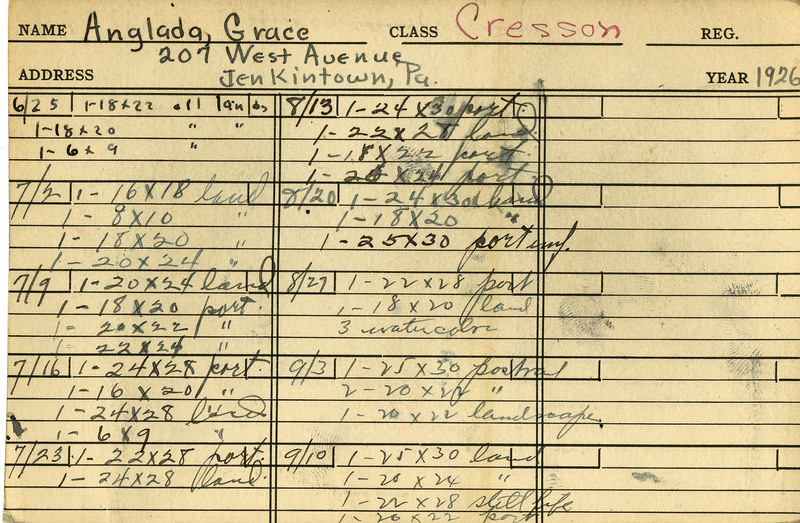 NAME Anglada, Grace CLASS Cresson REG.
207 West Avenue
ADDRESS Jenkintown, Pa. YEAR 1926
6/25 1-18x22 oil
1-18x20 " "
1-6x9 " "
7/2 1-16x18 land
1-8x10 "
1-18x20 "
1-20x24 "
7/9 1-20x24 land
1-18x20 port.
1-20x22 "
1-22x24 "
7/16 1-24x28 port.
1-16x20 "
1-24x28 land
1-6x9 "
7/23 1-22x28 port.
1-24x28 land.
8/13 1-24x30 port.
1-22x28 land.
1-18x22 port.
1-20x24 port.
8/20 1-24x30 land
1-18x20 "
1-25x30 port unf.
8/27 1-22x28 port
1-18x20 land
3 watercolor
9/3 1-25x30 portrait
2-20x22 "
1-20x22 landscape.
9/10 1-25x30 land
1-20x24 "
1-22x28 still life
1-20x22 port